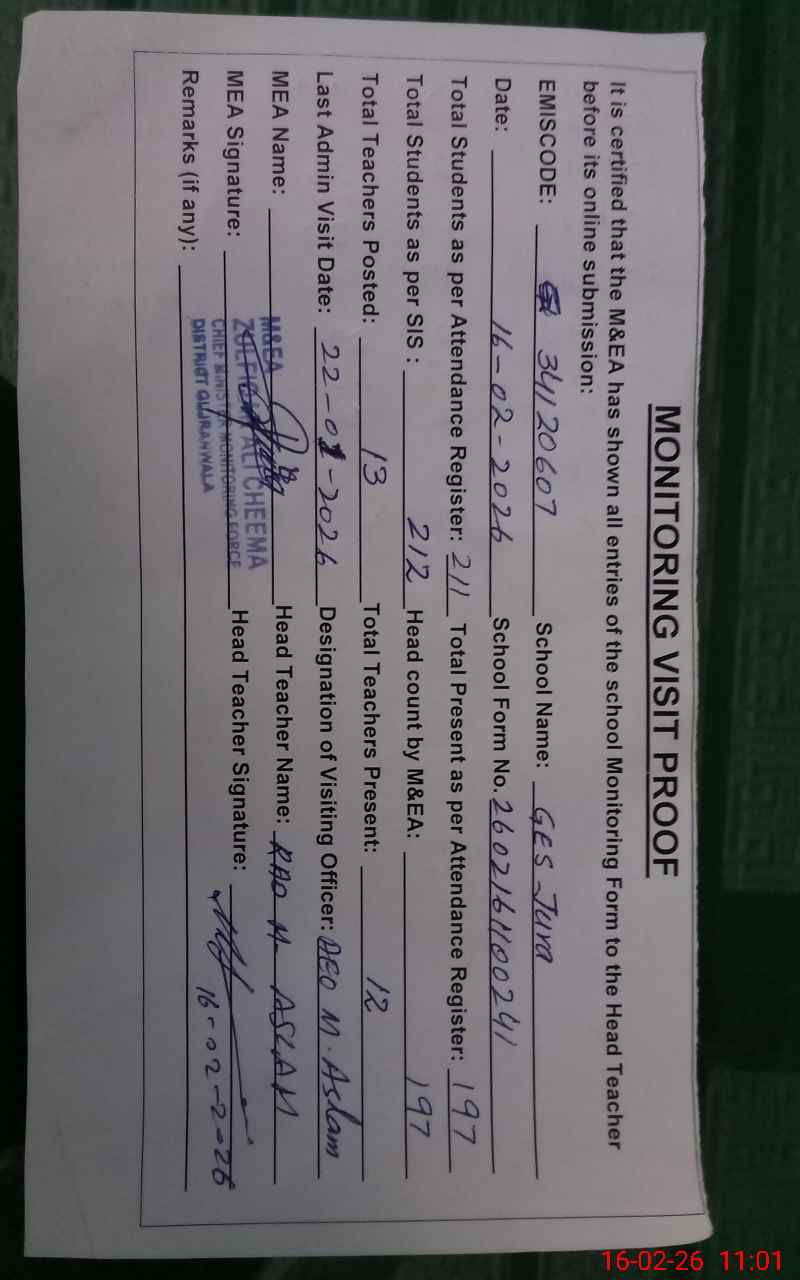 MONITORING VISIT PROOF
It is certified that the M&EA has shown all entries of the school Monitoring Form to the Head Teacher
before its online submission:
EMISCODE: 34120607 School Name: GES Jura
Date: 16-02-2026 School Form No. 2602161100241
Total Students as per Attendance Register: 211 Total Present as per Attendance Register: 197
Total Students as per SIS : 212 Head count by M&EA: 197
Total Teachers Posted: 13 Total Teachers Present: 12
Last Admin Visit Date: 22-01-2026 Designation of Visiting Officer: AEO M. Aslam
MEA Name: Head Teacher Name: RAO M. ASLAM
M&EA
ZULFIQAR ALI CHEEMA
CHIEF MINISTER MONITORING FORCE
DISTRICT GUJRANWALA
MEA Signature: Head Teacher Signature:
16-02-2026
Remarks (if any):
16-02-26 11:01